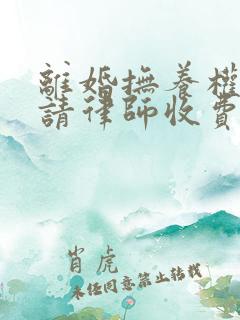 離婚撫養權
請律師收費
肖虎
未經同意禁止轉載